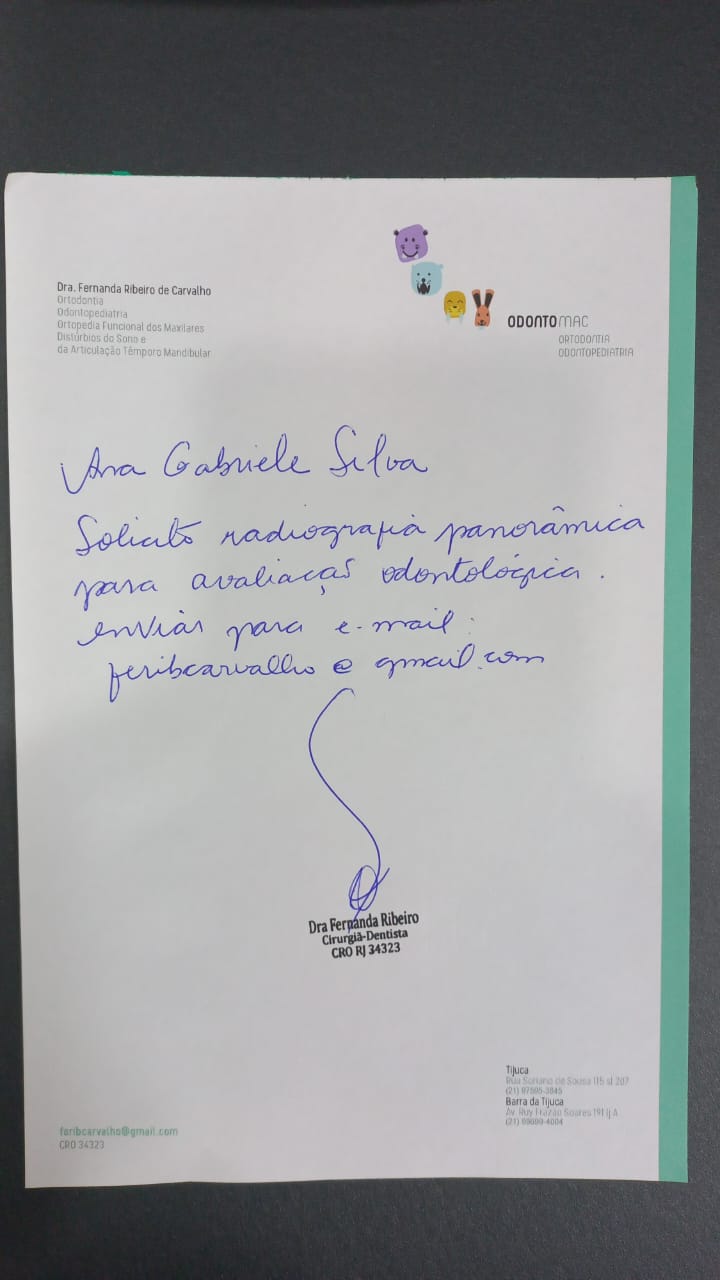 Dra. Fernanda Ribeiro de Carvalho
Ortodontia
Odontopediatria
Ortopedia Funcional dos Maxilares
Distúrbios do Sono e
da Articulação Têmporo Mandibular
ODONTOMAC
ORTODONTIA
ODONTOPEDIATRIA
Ana Gabriele Silva
Solicito radiografia panorâmica
para avaliação odontológica.
enviar para e-mail:
feribcarvalho@gmail.com
Dra Fernanda Ribeiro
Cirurgiã-Dentista
CRO RJ 34323
Tijuca
Rua Soriano de Sousa 115 sl 207
(21) 97595-3845
Barra da Tijuca
Av. Ruy Frazão Soares 191 lj A
(21) 99699-4004
feribcarvalho@gmail.com
CRO 34323